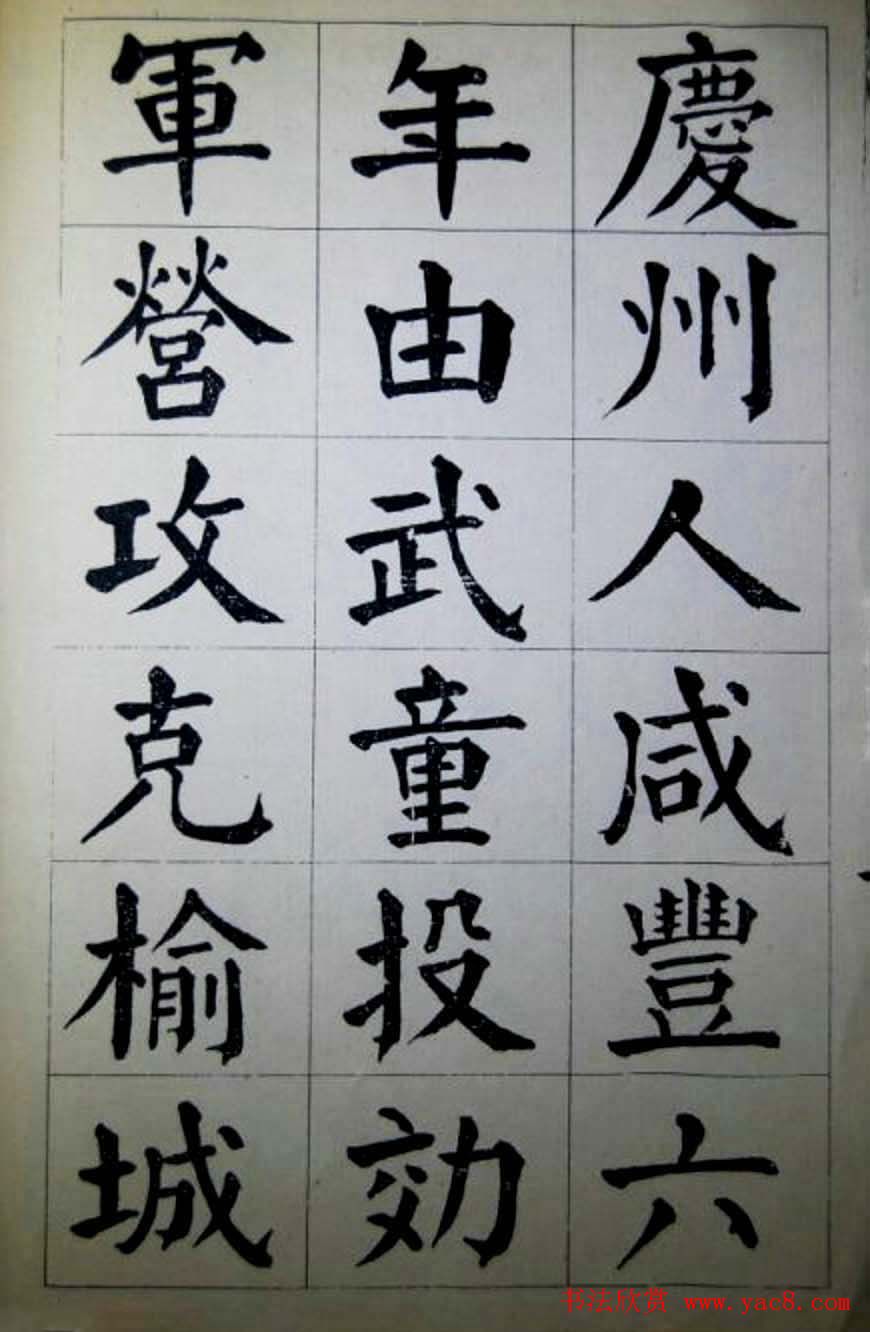 慶州人咸豐六
年由武童投効
軍營攻克榆城
书法欣赏 www.yac8.com